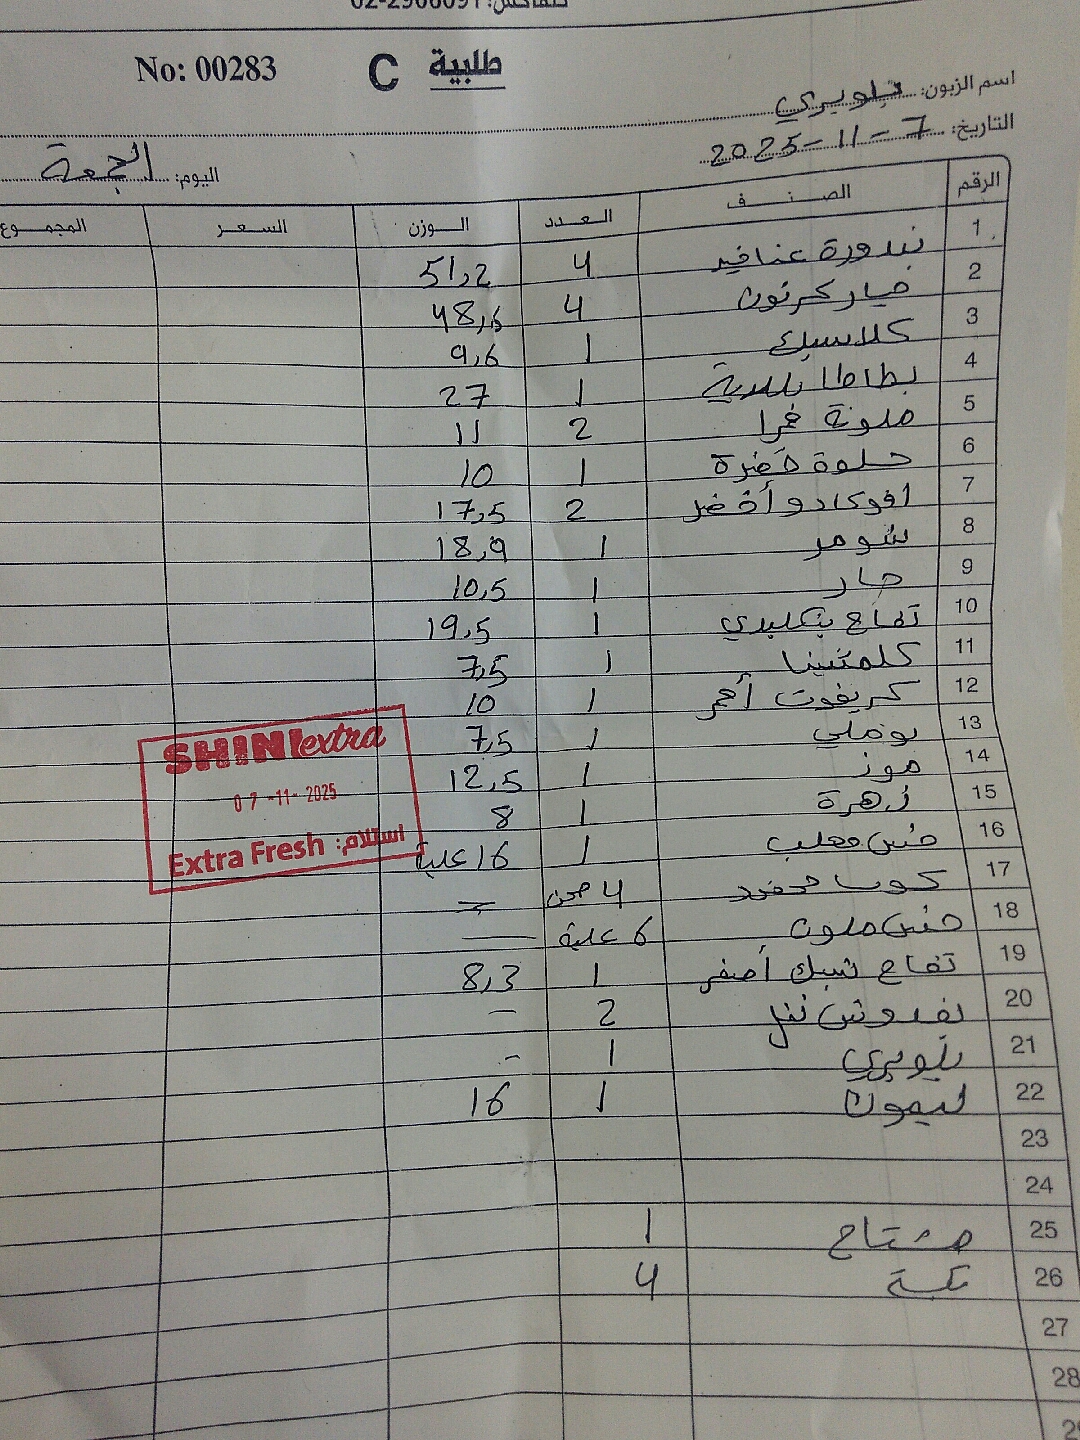 تلفاكس: 02-2906091
No: 00283 C طلبية
اسم الزبون: بلوبيري
التاريخ: 7-11-2025
اليوم: الجمعة
الرقم الصنف العدد الوزن السعر المجموع
1 بندورة عناقيد 4 51,2
2 خيار كرتون 4 48,6
3 كلاسيك 1 9,6
4 بطاطا بلدية 1 27
5 ملونة غمرا 2 11
6 حلوة خضرة 1 10
7 افوكادو أخضر 2 17,5
8 شومر 1 18,9
9 حار 1 10,5
10 تفاح بنكليدي 1 19,5
11 كلمنتينا 1 7,5
12 كريفوت أحمر 1 10
13 بوملي 1 7,5
14 موز 1 12,5
15 زهرة 1 8
16 خس معلب 1 16 علبة
17 كوسا محفور 4 صحن
18 خس ملون 6 علبة
19 تفاح سبك أصفر 1 8,3
20 بقدونس نتل 2 -
21 بلوبيري 1 -
22 ليمون 1 16
23
24
25 مشتاح 1
26 تكبة 4
27
28
SHINI extra
07-11-2025
Extra Fresh استلام: